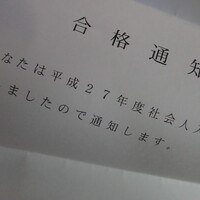 合格通知
なたは平成27年度社会人入
ましたので通知します。